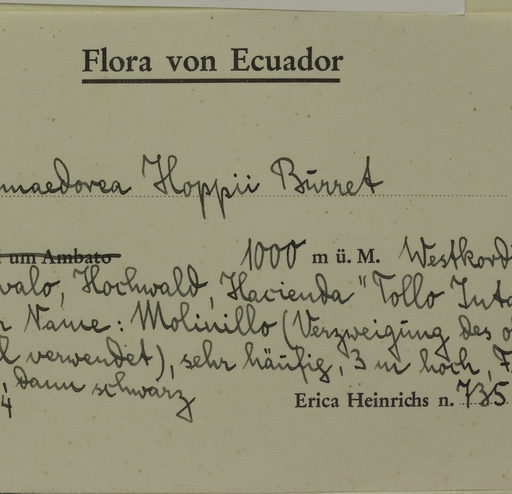 Flora von Ecuador
maedorea Hoppii Burret
um Ambato 1000 m ü. M. Westkord
valo, Hochwald, Hacienda "Tollo Inta
Name: Molinillo (Verzweigung des
verwendet), sehr häufig, 3 m hoch, F
, dann schwarz
4 Erica Heinrichs n. 735